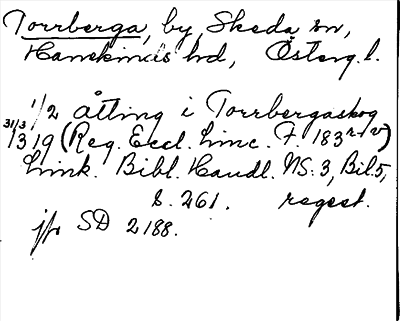 Torrberga, by, Skeda sn,
Hanekinds hd, Österg. l.
1/2 åtting i Torrbergaskog
31/3 1319 (Reg. Eccl. Linc. F. 183 r-v)
Link. Bibl. Handl. NS. 3, Bil. 5,
s. 261. regest.
jfr SD 2188.